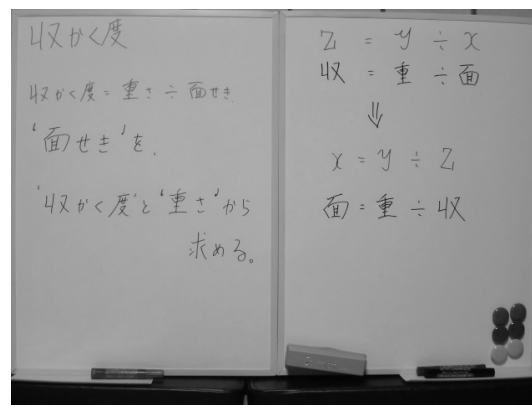 収かく度
収かく度=重さ÷面せき
'面せき'を、
'収かく度'と'重さ'から
求める。
Z = y ÷ x
収 = 重 ÷ 面
⇓
x = y ÷ Z
面 = 重 ÷ 収